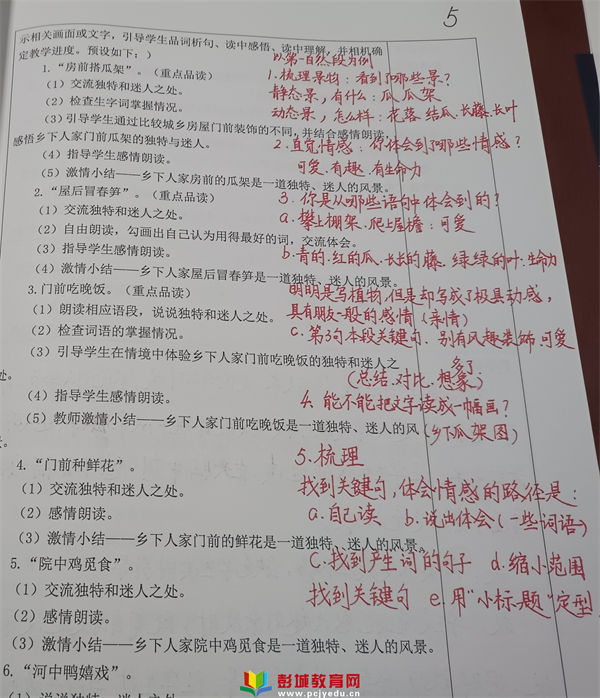 5
示相关画面或文字，引导学生品词析句、读中感悟、读中理解，并相机确
定教学进度。预设如下：）
1.“房前搭瓜架”。（重点品读）
（1）交流独特和迷人之处。
（2）检查生字词掌握情况。
（3）引导学生通过比较城乡房屋门前装饰的不同，并结合感情朗读，
感悟乡下人家门前瓜架的独特与迷人。
（4）指导学生感情朗读。
（5）激情小结——乡下人家房前的瓜架是一道独特、迷人的风景。
2.“屋后冒春笋”。（重点品读）
（1）交流独特和迷人之处。
（2）自由朗读，勾画出自己认为用得最好的词，交流体会。
（3）指导学生感情朗读。
（4）激情小结——乡下人家屋后冒春笋是一道独特、迷人的风景。
3.门前吃晚饭。（重点品读）
（1）朗读相应语段，说说独特和迷人之处。
（2）检查词语的掌握情况。
（3）引导学生在情境中体验乡下人家门前吃晚饭的独特和迷人之
处。
（4）指导学生感情朗读。
（5）教师激情小结——乡下人家门前吃晚饭是一道独特、迷人的风
4.“门前种鲜花”。
（1）交流独特和迷人之处。
（2）感情朗读。
（3）激情小结——乡下人家门前的鲜花是一道独特、迷人的风景。
5.“院中鸡觅食”。
（1）交流独特和迷人之处。
（2）感情朗读。
（3）激情小结——乡下人家院中鸡觅食是一道独特、迷人的风景。
6.“河中鸭嬉戏”。
以第一自然段为例
1.梳理景物：看到了哪些景？
静态景，有什么：瓜 瓜架
动态景，怎么样：花落.结瓜.长藤.长叶
2.直觉情感：你体会到了哪些情感？
可爱.有趣.有生命力
3.你是从哪些语句中体会到的？
a.攀上棚架.爬上屋檐：可爱
b.青的.红的瓜.长长的藤.绿绿的叶：生命力
明明是写植物，但是却写成了极具动感，
具有朋友一般的感情（亲情）
c.第3句本段关键句.别有风趣装饰 可爱
多了
（总结.对比.想象）
4.能不能把文字读成一幅画？
（乡下瓜架图）
5.梳理
找到关键句，体会情感的路径是：
a.自己读 b.说出体会（一些词语）
C.找到产生词的句子 d.缩小范围
找到关键句 e.用“小标题”定型
彭城教育网
www.pcjyedu.cn